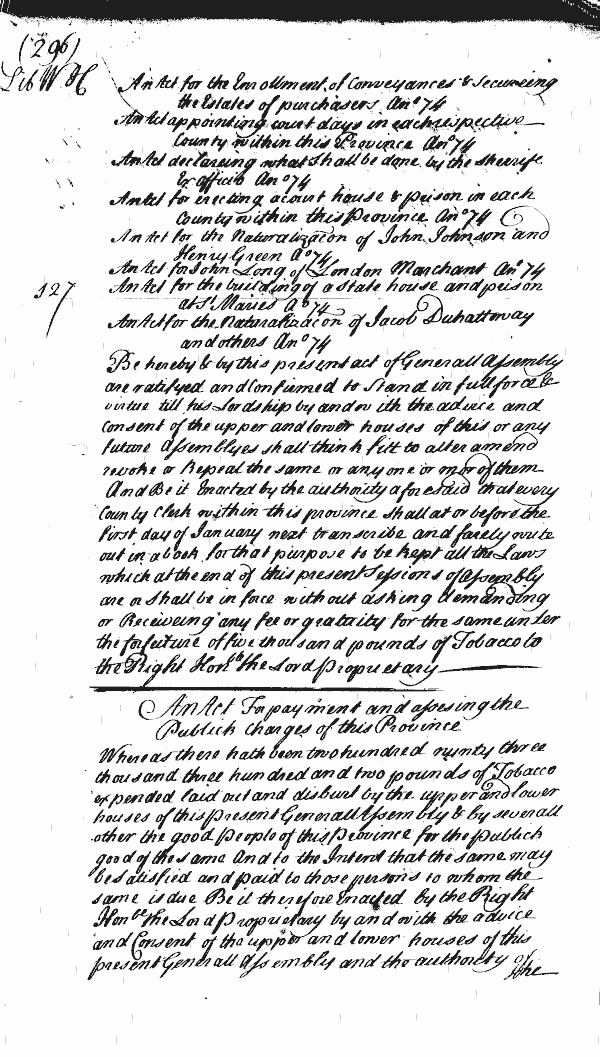 (296)
Lib W H
An Act for the Enrollment of Conveyances & Secureing
the Estates of purchasers Anº 74
An Act appointing court days in each respective
County within this Province Anº 74
An Act declareing what Shall be done by the Sheriffe
Ex officio Anº 74
An Act for erecting a court house & prison in each
County within this Province Anº 74
An Act for the Naturalizacon of John Johnson and
Henry Green Aº 74
An Act for John Long of London Marchant Anº 74
An Act for the building of a state house and prison
127
at St Maries Aº 74
An Act for the Naturalizacon of Jacob Duhattoway
and others Anº 74
Be hereby & by this present act of Generall Assembly
are ratifyed and Confirmed to Stand in full force &
virtue till his Lordship by and with the advice and
Consent of the upper and lower houses of this or any
future Assemblyes shall think fitt to alter amend
revoke or Repeal the same or any one or more of them
And Be it Enacted by the authority aforesaid that every
County Clerk within this province shall at or before the
first day of January next transcribe and fairely write
out in a book for that purpose to be kept all the Laws
which at the end of this present Sessions of Assembly
are or shall be in force without asking demanding
or Receiveing any fee or gratuity for the same under
the forfeiture of five thousand pounds of Tobacco to
the Right Honble the Lord Proprietary
An Act For payment and assesing the
Publick Charges of this Province
Whereas there hath been two hundred nynty three
thousand three hundred and two pounds of Tobacco
expended laid out and disburst by the upper and lower
houses of this Present Generall Assembly & by severall
other the good People of this Province for the publick
good of the same And to the Intent that the same may
be satisfied and paid to those persons to whom the
same is due Be it therefore Enacted by the Right
Honble the Lord Proprietary by and with the advice
and Consent of the upper and lower houses of this
present Generall Assembly and the authority of
the